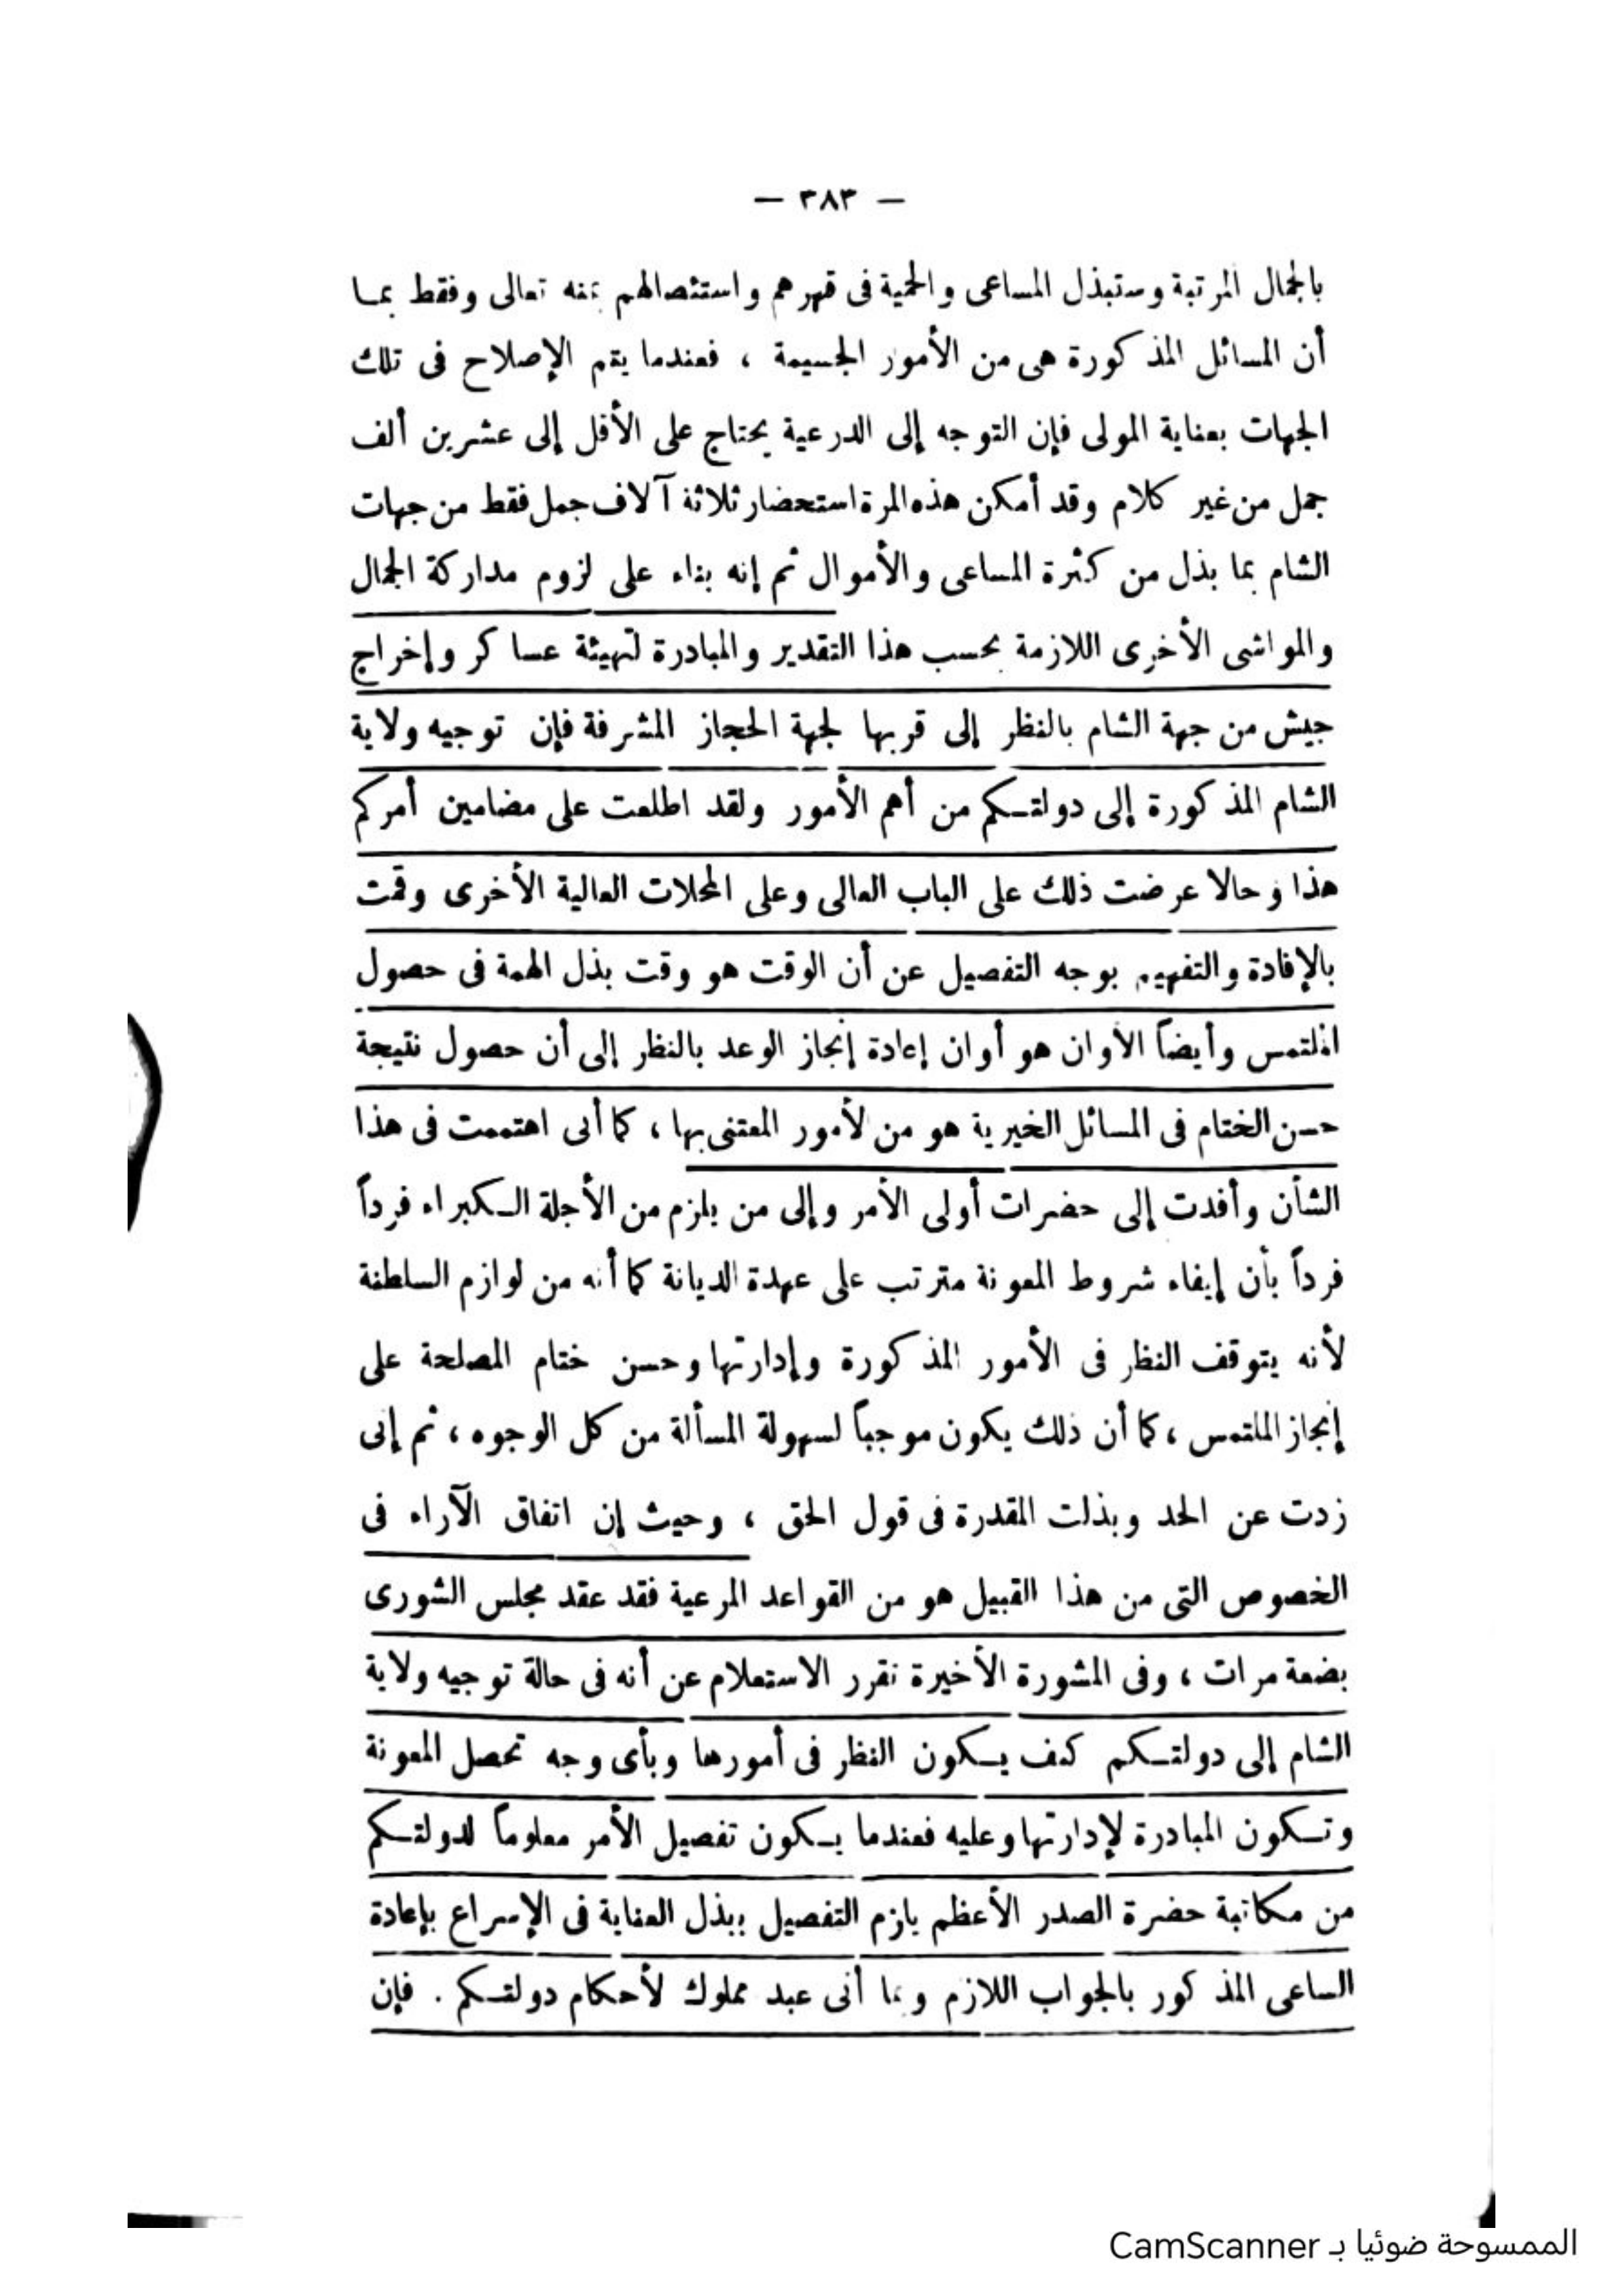 — ٣٨٣ —
بالجمال المرتبة وستبذل المساعى والحمية فى قهرهم واستئصالهم بمنه تعالى وفقط بما
أن المسائل المذكورة هى من الأمور الجسيمة ، فعندما يتم الإصلاح فى تلك
الجهات بعناية المولى فإن التوجه إلى الدرعية يحتاج على الأقل إلى عشرين ألف
جمل من غير كلام وقد أمكن هذه المرة استحضار ثلاثة آلاف جمل فقط من جهات
الشام بما بذل من كثرة المساعى والأموال ثم إنه بناء على لزوم مداركة الجمال
والمواشى الأخرى اللازمة بحسب هذا التقدير والمبادرة لتهيئة عساكر وإخراج
جيش من جهة الشام بالنظر إلى قربها لجهة الحجاز المشرفة فإن توجيه ولاية
الشام المذكورة إلى دولتكم من أهم الأمور ولقد اطلعت على مضامين أمركم
هذا وحالا عرضت ذلك على الباب العالى وعلى المحلات العالية الأخرى وقمت
بالإفادة والتفهيم بوجه التفصيل عن أن الوقت هو وقت بذل الهمة فى حصول
الملتمس وأيضاً الأوان هو أوان إعادة إنجاز الوعد بالنظر إلى أن حصول نتيجة
حسن الختام فى المسائل الخيرية هو من لأمور المعتنى بها ، كما أنى اهتممت فى هذا
الشأن وأفدت إلى حضرات أولى الأمر وإلى من يلزم من الأجلة الكبراء فرداً
فرداً بأن إيفاء شروط المعونة مترتب على عهدة الديانة كما أنه من لوازم السلطنة
لأنه يتوقف النظر فى الأمور المذكورة وإدارتها وحسن ختام المصلحة على
إنجاز الملتمس ، كما أن ذلك يكون موجباً لسهولة المسألة من كل الوجوه ، ثم إنى
زدت عن الحد وبذلت المقدرة فى قول الحق ، وحيث إن اتفاق الآراء فى
الخصوص التى من هذا القبيل هو من القواعد المرعية فقد عقد مجلس الشورى
بضعة مرات ، وفى المشورة الأخيرة تقرر الاستعلام عن أنه فى حالة توجيه ولاية
الشام إلى دولتكم كيف يكون النظر فى أمورها وبأى وجه تحصل المعونة
وتكون المبادرة لإدارتها وعليه فعندما يكون تفصيل الأمر معلوماً لدولتكم
من مكاتبة حضرة الصدر الأعظم يلزم التفصيل ببذل العناية فى الإسراع بإعادة
الساعى المذكور بالجواب اللازم وبما أنى عبد مملوك لأحكام دولتكم . فإن
الممسوحة ضوئيا بـ CamScanner